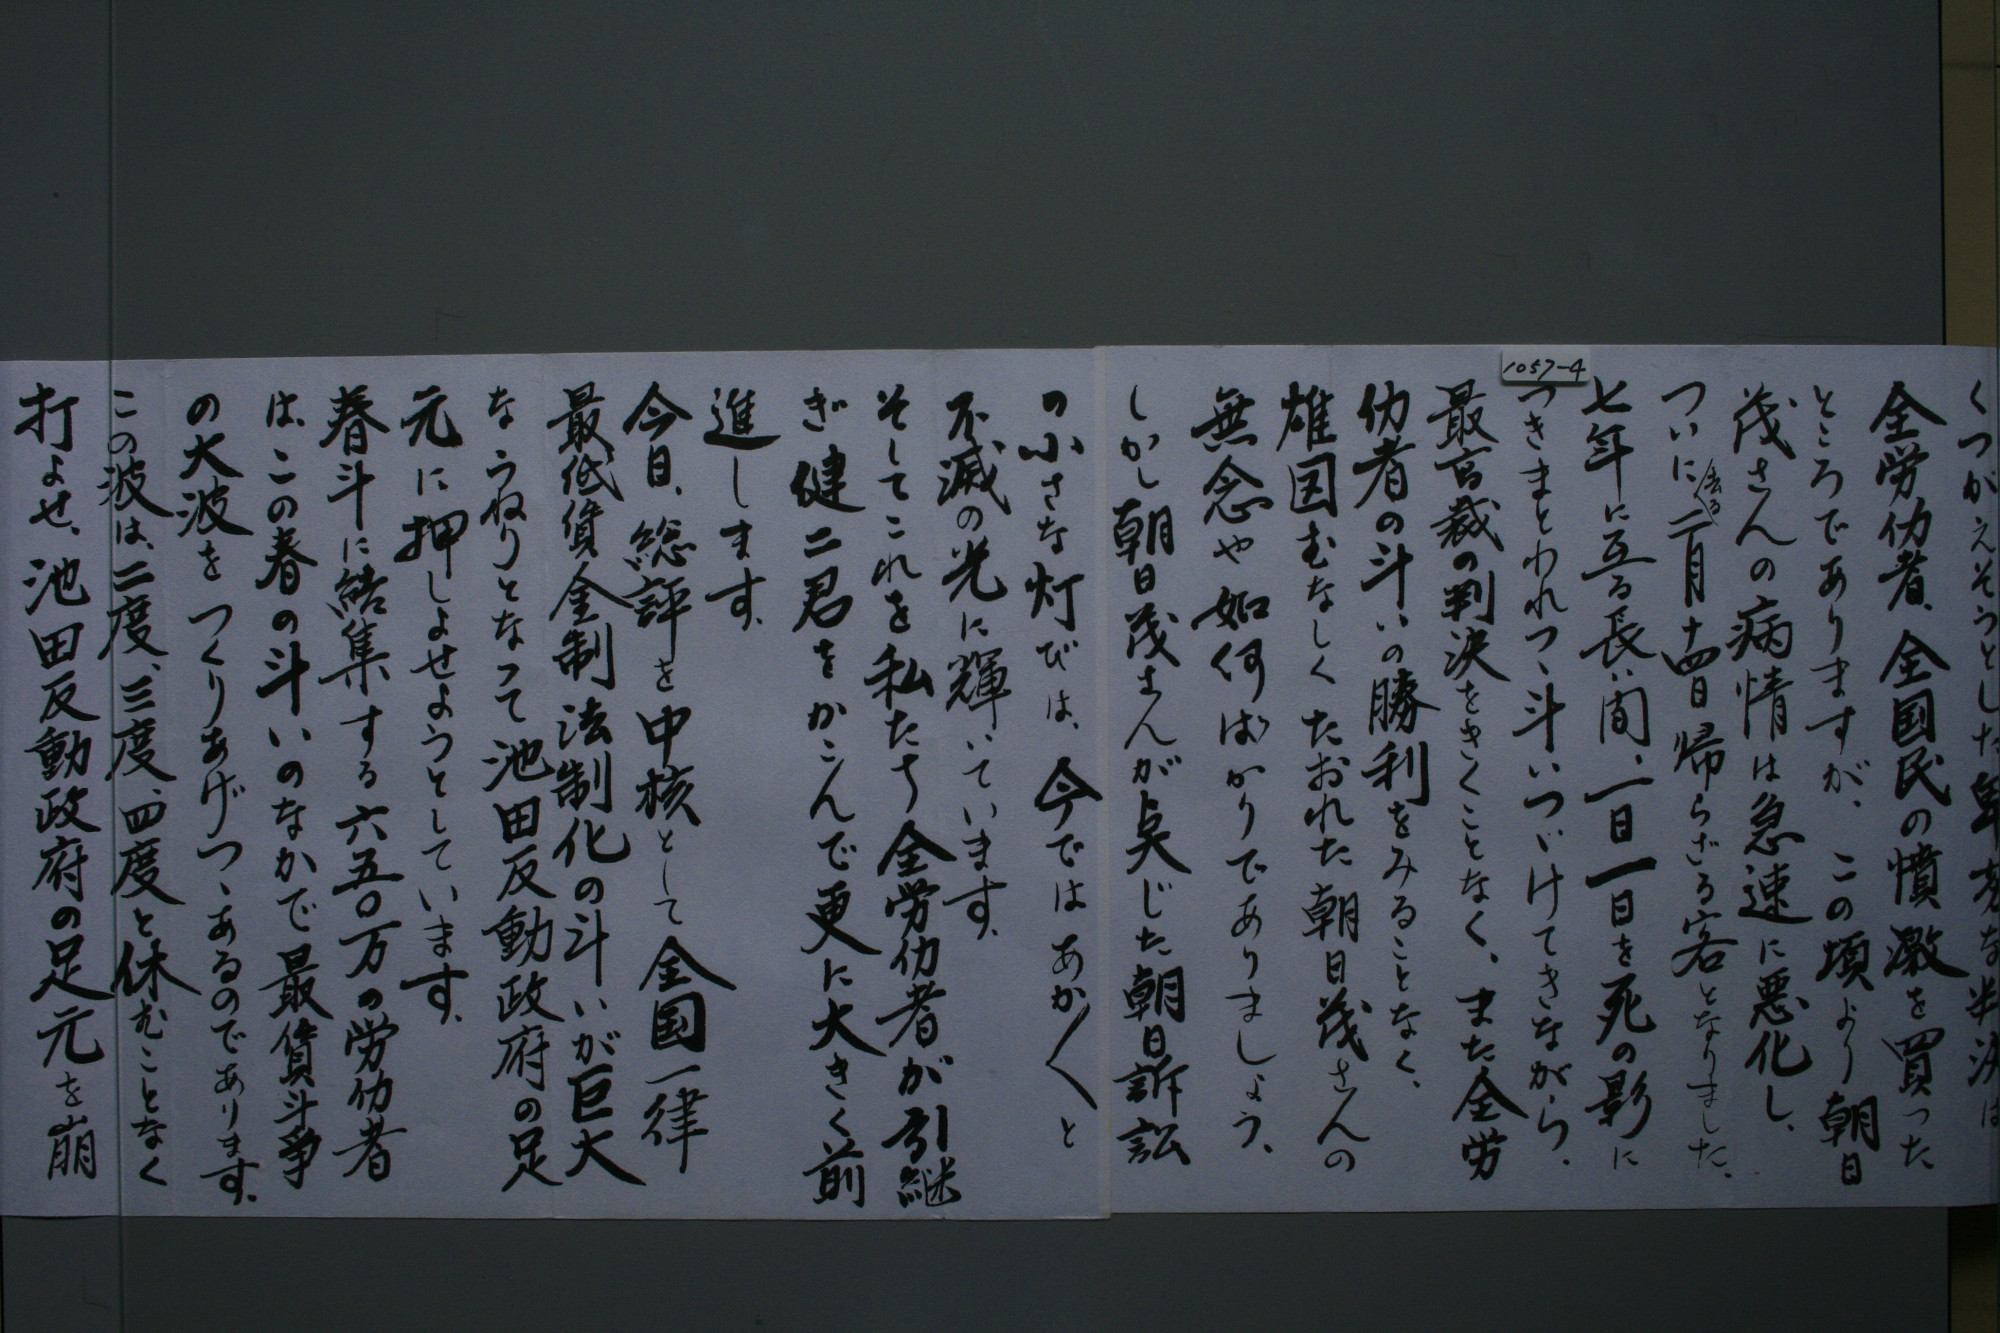 1057-4
くつがえそうとした卑劣な判決は
全労仂者、全国民の憤激を買った
ところでありますが、この頃より朝日
茂さんの病情は急速に悪化し、
ついに去る二月十四日帰らざる客となりました、
七年に亙る長い間、一日一日を死の影に
つきまとわれつゝ斗いつゞけてきながら、
最高裁の判決をきくことなく、また全労
仂者の斗いの勝利をみることなく、
雄図むなしくたおれた朝日茂さんの
無念や如何ばかりでありましょう、
しかし朝日茂さんが点じた朝日訴訟
の小さな灯びは、今ではあか〱と
不滅の光に輝いています、
そしてこれを私たち全労仂者が引継
ぎ健二君をかこんで更に大きく前
進します、
今日、総評を中核として全国一律
最低賃金制法制化の斗いが巨大
なうねりとなって池田反動政府の足
元に押しよせようとしています、
春斗に結集する六五〇万の労仂者
は、この春の斗いのなかで最賃斗争
の大波をつくりあげつゝあるのであります、
この波は、二度、三度、四度と休むことなく
打よせ、池田反動政府の足元を崩